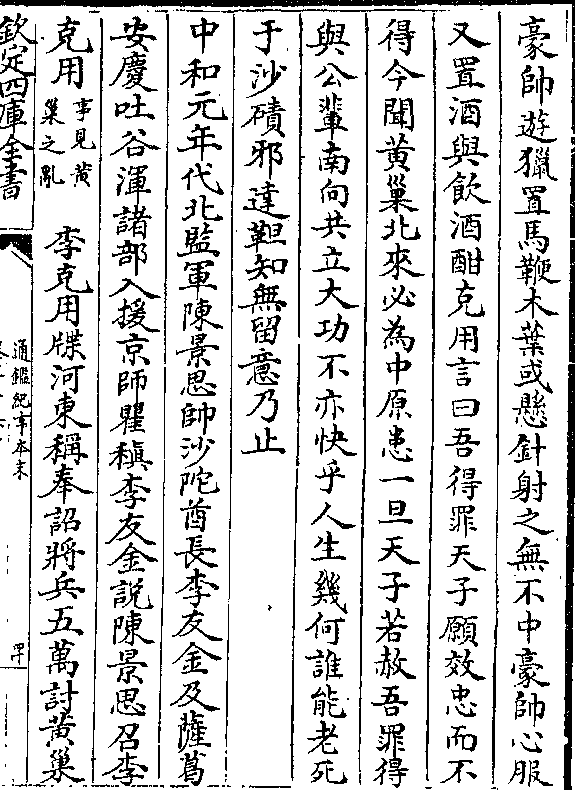 豪帥遊獵置馬鞭木葉或懸針射之無不中豪帥心服
又置酒與飲酒酣克用言曰吾得罪天子願效忠而不
得今聞黄巢北來必為中原患一旦天子若赦吾罪得
與公輩南向共立大功不亦快乎人生幾何誰能老死
于沙磧邪達靼知無留意乃止
中和元年代北監軍陳景思帥沙陀酋長李友金及薩葛
安慶吐谷渾諸部入援京師瞿稹李友金説陳景思召李
克用事見黄巢之亂 李克用牒河東稱奉詔將兵五萬討黄巢
欽定四庫全書
通鑑紀事本末